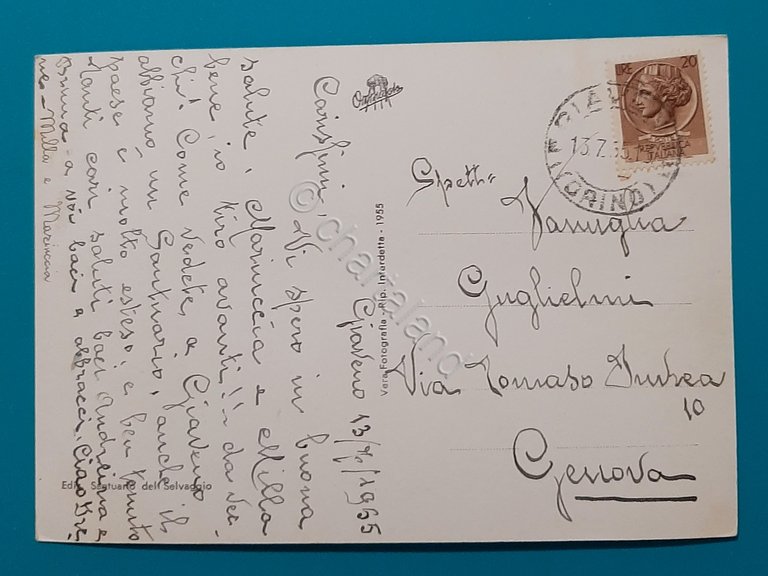 Giaveno 13/7/1955
Carissimi, Vi spero in buona
salute, Mariuccia e Milla
bene, io tiro avanti!! - da vec-
chi! Come vedete, a Giaveno
abbiamo un Santuario, anche il
paese è molto esteso, e ben tenuto
Tanti cari saluti baci Andreina e
Bruna - a voi baci e abbracci. Ciao
Milla e Mariuccia
Ediz. Santuario dell Selvaggio
Vera Fotografia - Rip. Interdetta - 1955
LIRE 20
REPVBBLICA
ITALIANA
13.7.55
(TORINO)
Spett.
Famiglia
Guglielmi
Via Tomaso Invrea
10
Genova
© chartaland